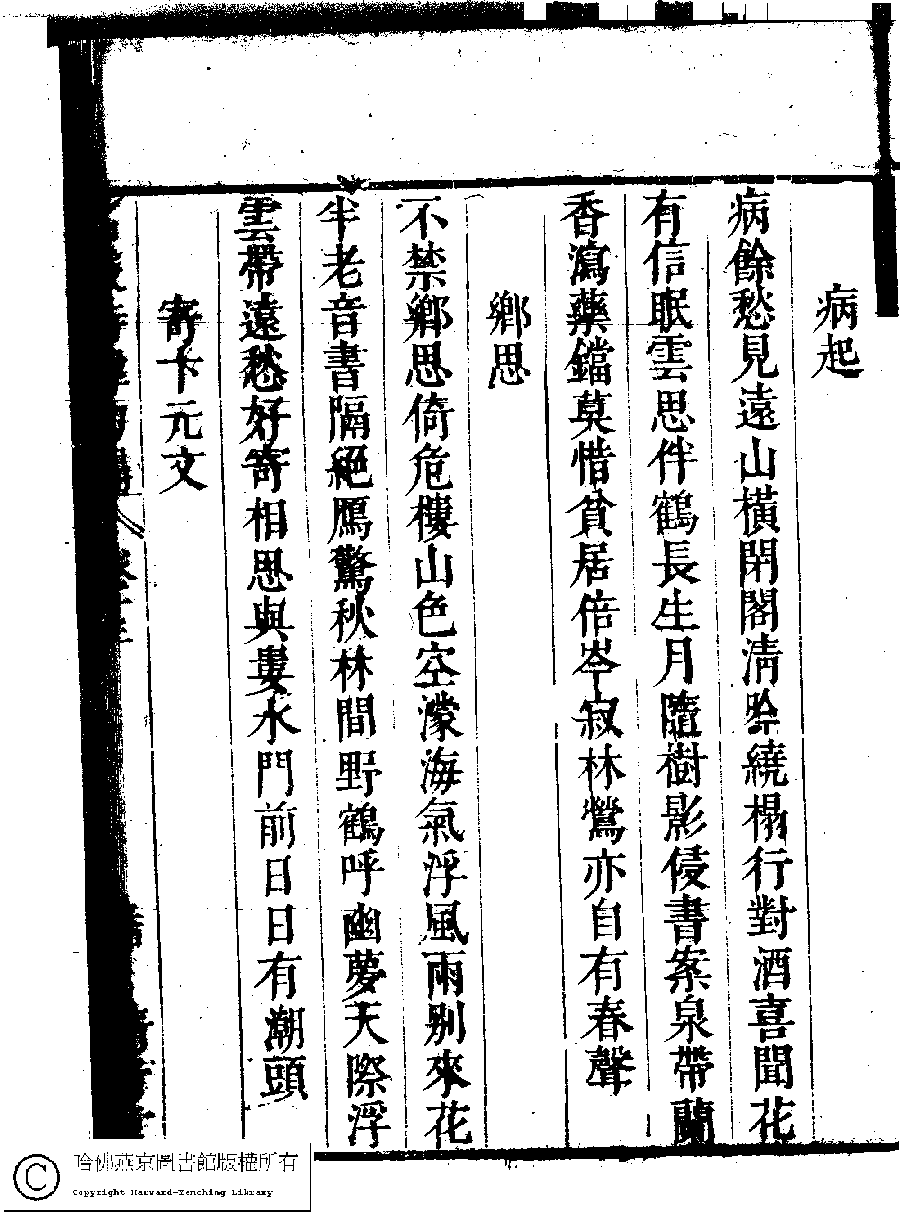 病起
病餘愁見遠山橫閉閣清吟繞榻行對酒喜聞花
有信眠雲思伴鶴長生月隨樹影侵書案泉帶蘭
香瀉藥鐺莫惜貧居倍岑寂林鶯亦自有春聲
鄉思
不禁鄉思倚危樓山色空濛海氣浮風雨別來花
半老音書隔絕鴈驚秋林間野鶴呼幽夢天際浮
雲帶遠愁好寄相思與婁水門前日日有潮頭
寄卞元文
哈佛燕京圖書館版權所有
Copyright Harvard-Yenching Library